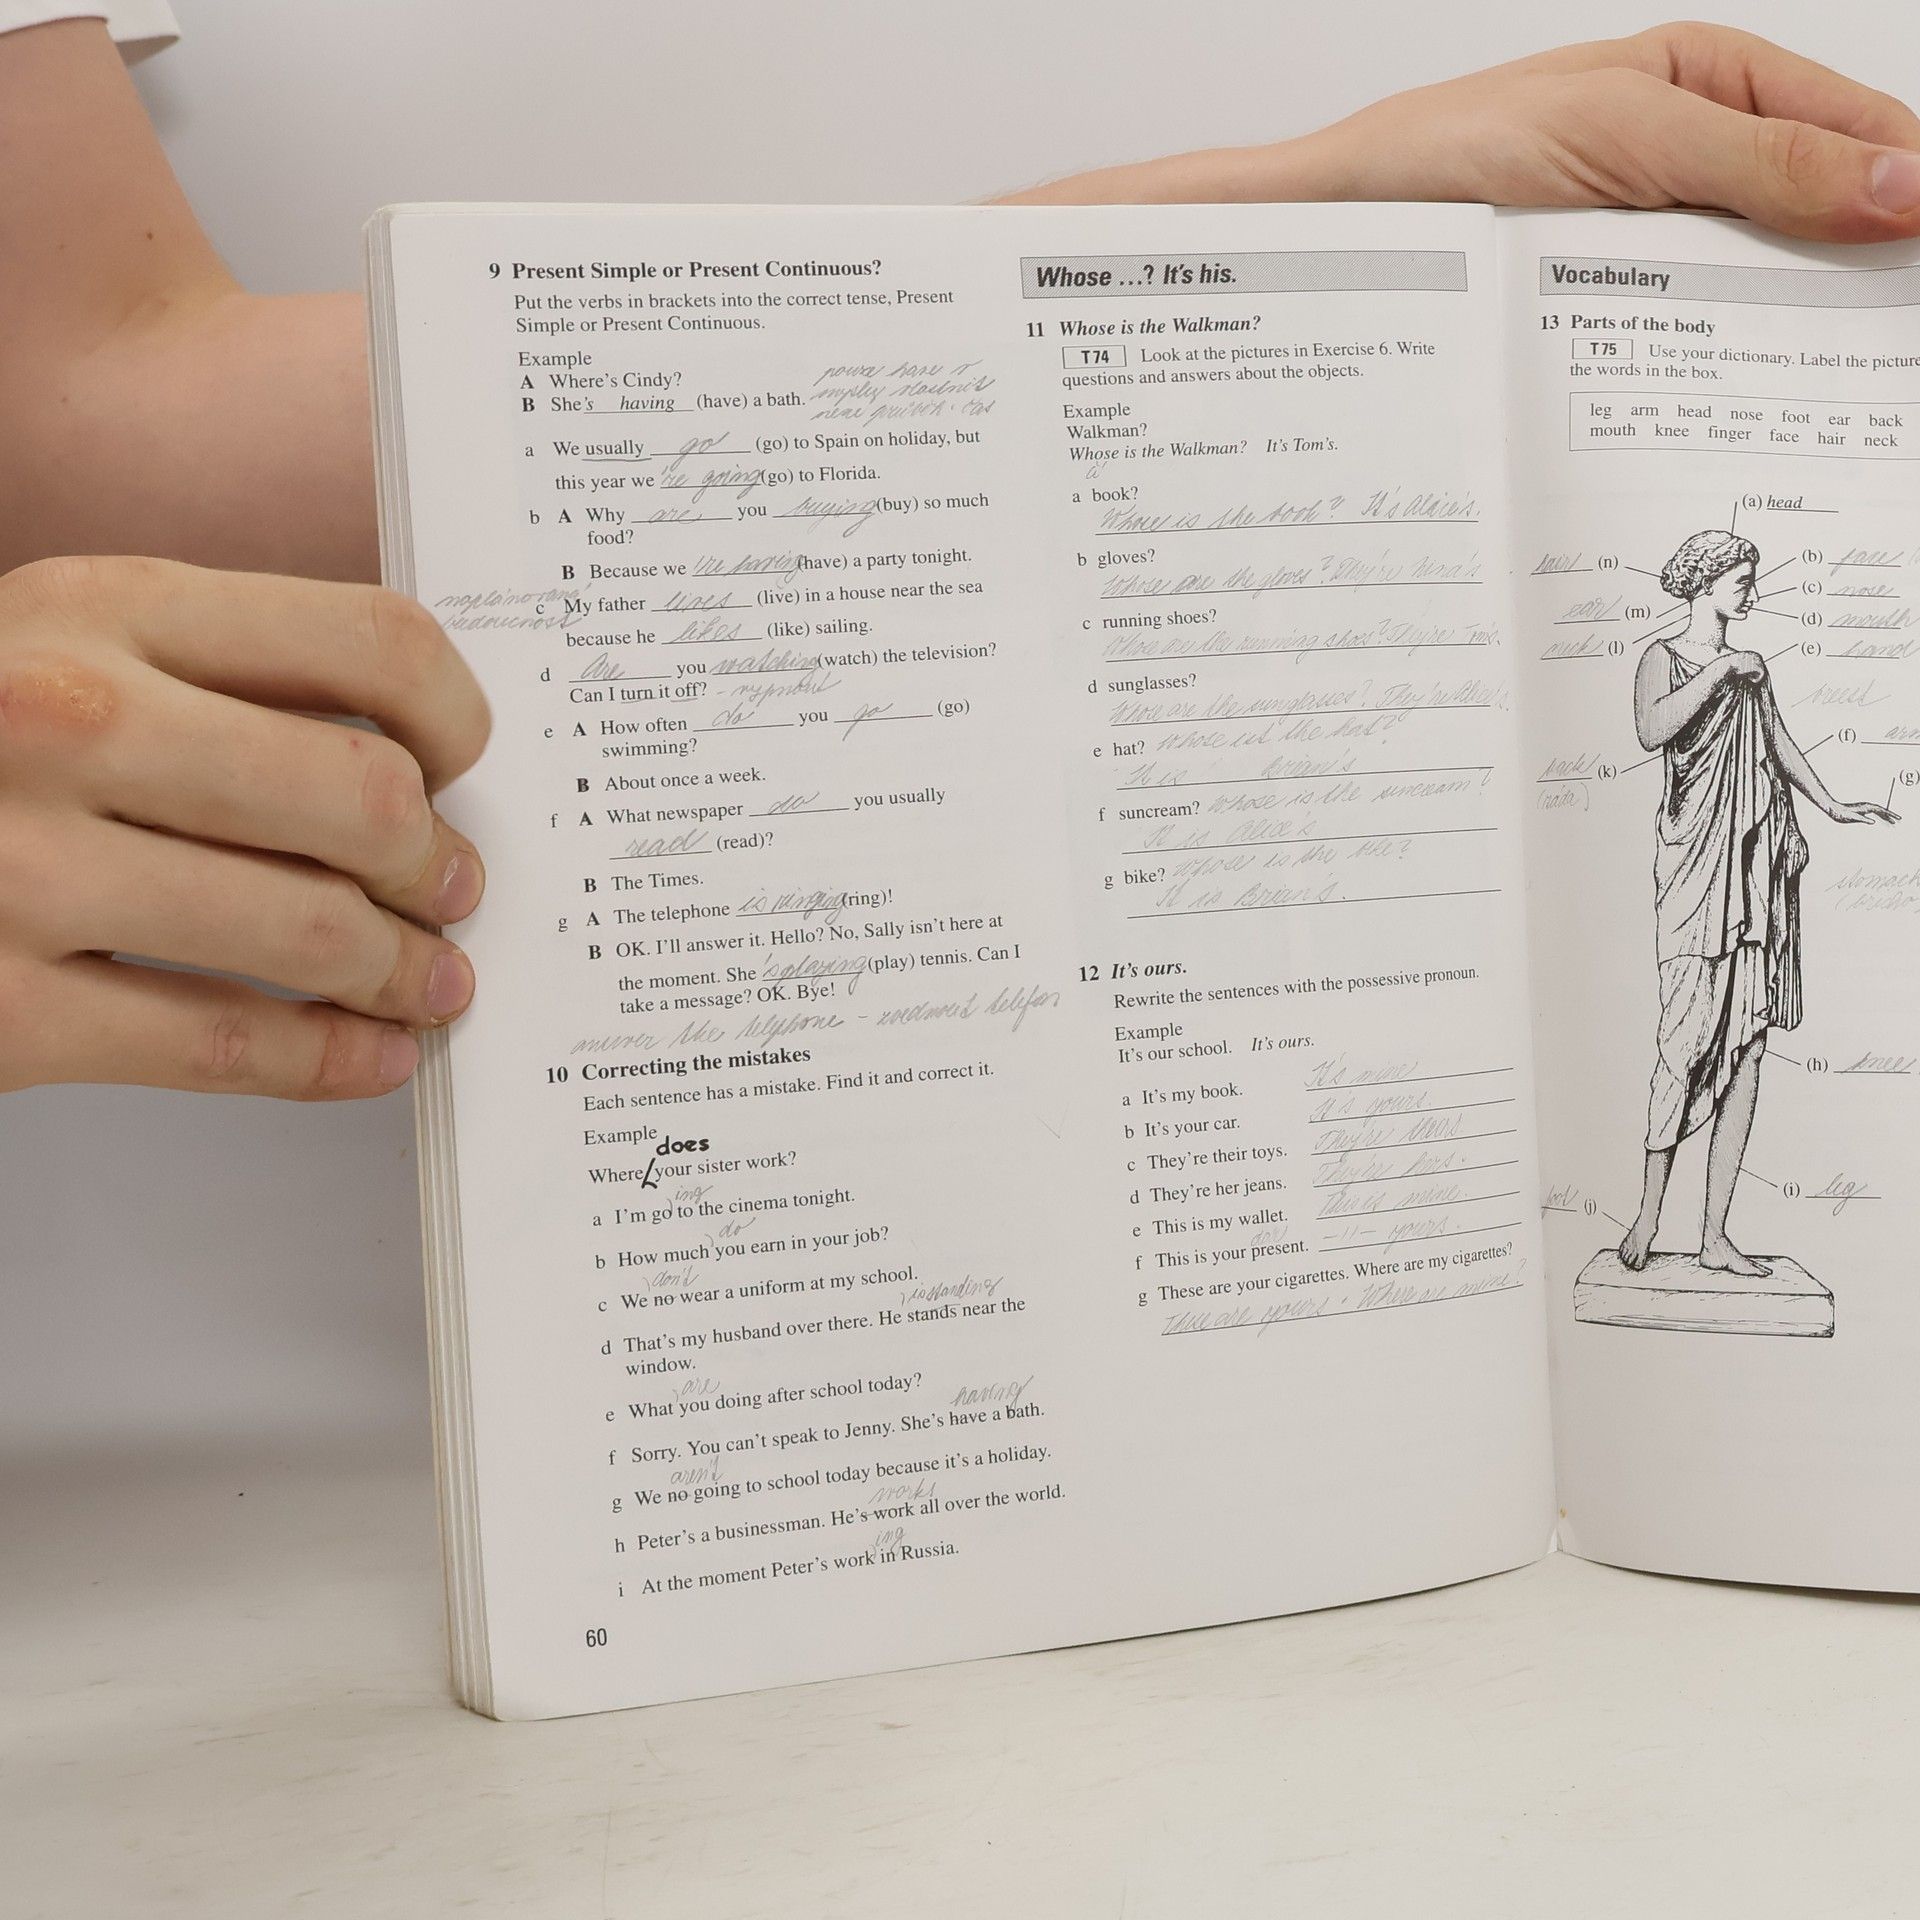 9 Present Simple or Present Continuous?
Put the verbs in brackets into the correct tense, Present
Simple or Present Continuous.
Example
A Where's Cindy?
B She's having (have) a bath.
a We usually go (go) to Spain on holiday, but
this year we 're going (go) to Florida.
b A Why are you buying (buy) so much
food?
B Because we 're having (have) a party tonight.
c My father lives (live) in a house near the sea
because he likes (like) sailing.
d Are you watching (watch) the television?
Can I turn it off? - vypnout
e A How often do you go (go)
swimming?
B About once a week.
f A What newspaper do you usually
read (read)?
B The Times.
g A The telephone is ringing (ring)!
B OK. I'll answer it. Hello? No, Sally isn't here at
the moment. She 's playing (play) tennis. Can I
take a message? OK. Bye!
answer the telephone - zvednout telefon
10 Correcting the mistakes
Each sentence has a mistake. Find it and correct it.
Example
does
Where your sister work?
ing
a I'm go to the cinema tonight.
do
b How much you earn in your job?
don't
c We no wear a uniform at my school.
is standing
d That's my husband over there. He stands near the
window.
are
e What you doing after school today?
having
f Sorry. You can't speak to Jenny. She's have a bath.
aren't
g We no going to school today because it's a holiday.
works
h Peter's a businessman. He's work all over the world.
ing
i At the moment Peter's work in Russia.
60
Whose ...? It's his.
11 Whose is the Walkman?
T 74 Look at the pictures in Exercise 6. Write
questions and answers about the objects.
Example
Walkman?
Whose is the Walkman? It's Tom's.
a book?
Whose is the book? It's Alice's.
b gloves?
Whose are the gloves? They're Nina's
c running shoes?
Whose are the running shoes? They're Tom's.
d sunglasses?
Whose are the sunglasses? They're Alice's.
e hat? Whose is the hat?
It is Brian's
f suncream? Whose is the suncream?
It is Alice's
g bike? Whose is the bike?
It is Brian's.
12 It's ours.
Rewrite the sentences with the possessive pronoun.
Example
It's our school. It's ours.
a It's my book. It's mine
b It's your car. It's yours.
c They're their toys. They're theirs
d They're her jeans. They're hers.
e This is my wallet. This is mine.
f This is your present. -11- yours.
g These are your cigarettes. Where are my cigarettes?
These are yours. Where are mine?
Vocabulary
13 Parts of the body
T 75 Use your dictionary. Label the picture
the words in the box.
leg arm head nose foot ear back
mouth knee finger face hair neck
(a) head
hair (n)
(b) face
(c) nose
ear (m)
(d) mouth
neck (l)
(e) hand
(f) arm
back (k)
(záda)
(g)
stomach
(h) knee
(i) leg
foot (j)